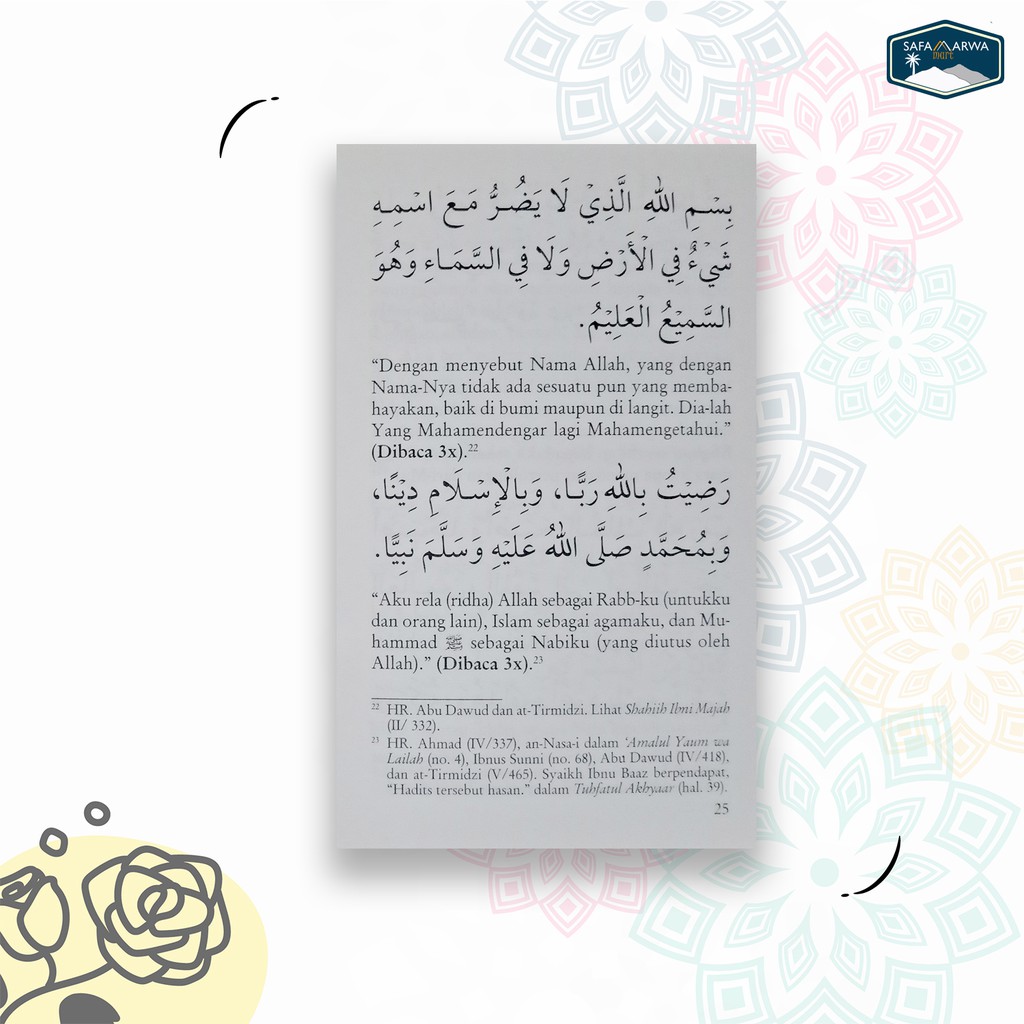 SAFA MARWA
mart
بِسْمِ اللهِ الَّذِيْ لَا يَضُرُّ مَعَ اسْمِهِ
شَيْءٌ فِي الْأَرْضِ وَلَا فِي السَّمَاءِ وَهُوَ
السَّمِيْعُ الْعَلِيْمُ.
“Dengan menyebut Nama Allah, yang dengan
Nama-Nya tidak ada sesuatu pun yang memba-
hayakan, baik di bumi maupun di langit. Dia-lah
Yang Mahamendengar lagi Mahamengetahui.”
(Dibaca 3x).22
رَضِيْتُ بِاللهِ رَبًّا، وَبِالْإِسْلَامِ دِيْنًا،
وَبِمُحَمَّدٍ صَلَّى اللهُ عَلَيْهِ وَسَلَّمَ نَبِيًّا.
“Aku rela (ridha) Allah sebagai Rabb-ku (untukku
dan orang lain), Islam sebagai agamaku, dan Mu-
hammad ﷺ sebagai Nabiku (yang diutus oleh
Allah).” (Dibaca 3x).23
22 HR. Abu Dawud dan at-Tirmidzi. Lihat Shahiih Ibni Majah
(II/ 332).
23 HR. Ahmad (IV/337), an-Nasa-i dalam ‘Amalul Yaum wa
Lailah (no. 4), Ibnus Sunni (no. 68), Abu Dawud (IV/418),
dan at-Tirmidzi (V/465). Syaikh Ibnu Baaz berpendapat,
“Hadits tersebut hasan.” dalam Tuhfatul Akhyaar (hal. 39).
25